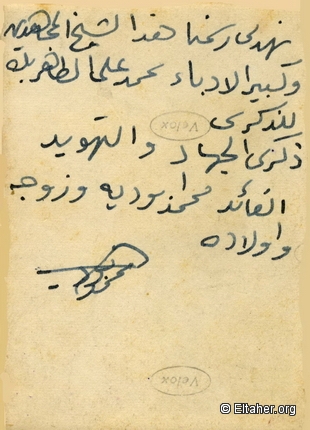 نهدى رسمنا هذا لشيخ المجاهدين
وكبير الادباء محمد على الطاهر بك
للذكرى
Velox
ذكرى الجهاد والتهويد
القائد محمد ابوديه وزوجه
واولاده
Velox
© Eltaher.org